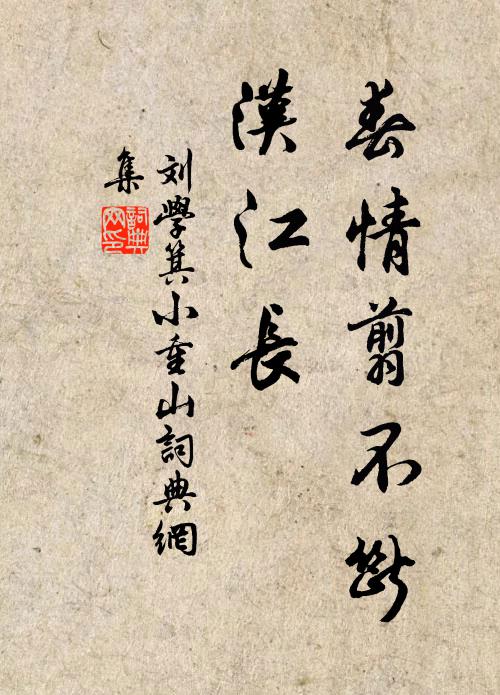 春情翦不斷
漢江長
刘學箕小重山詞典網
集
詞典网印